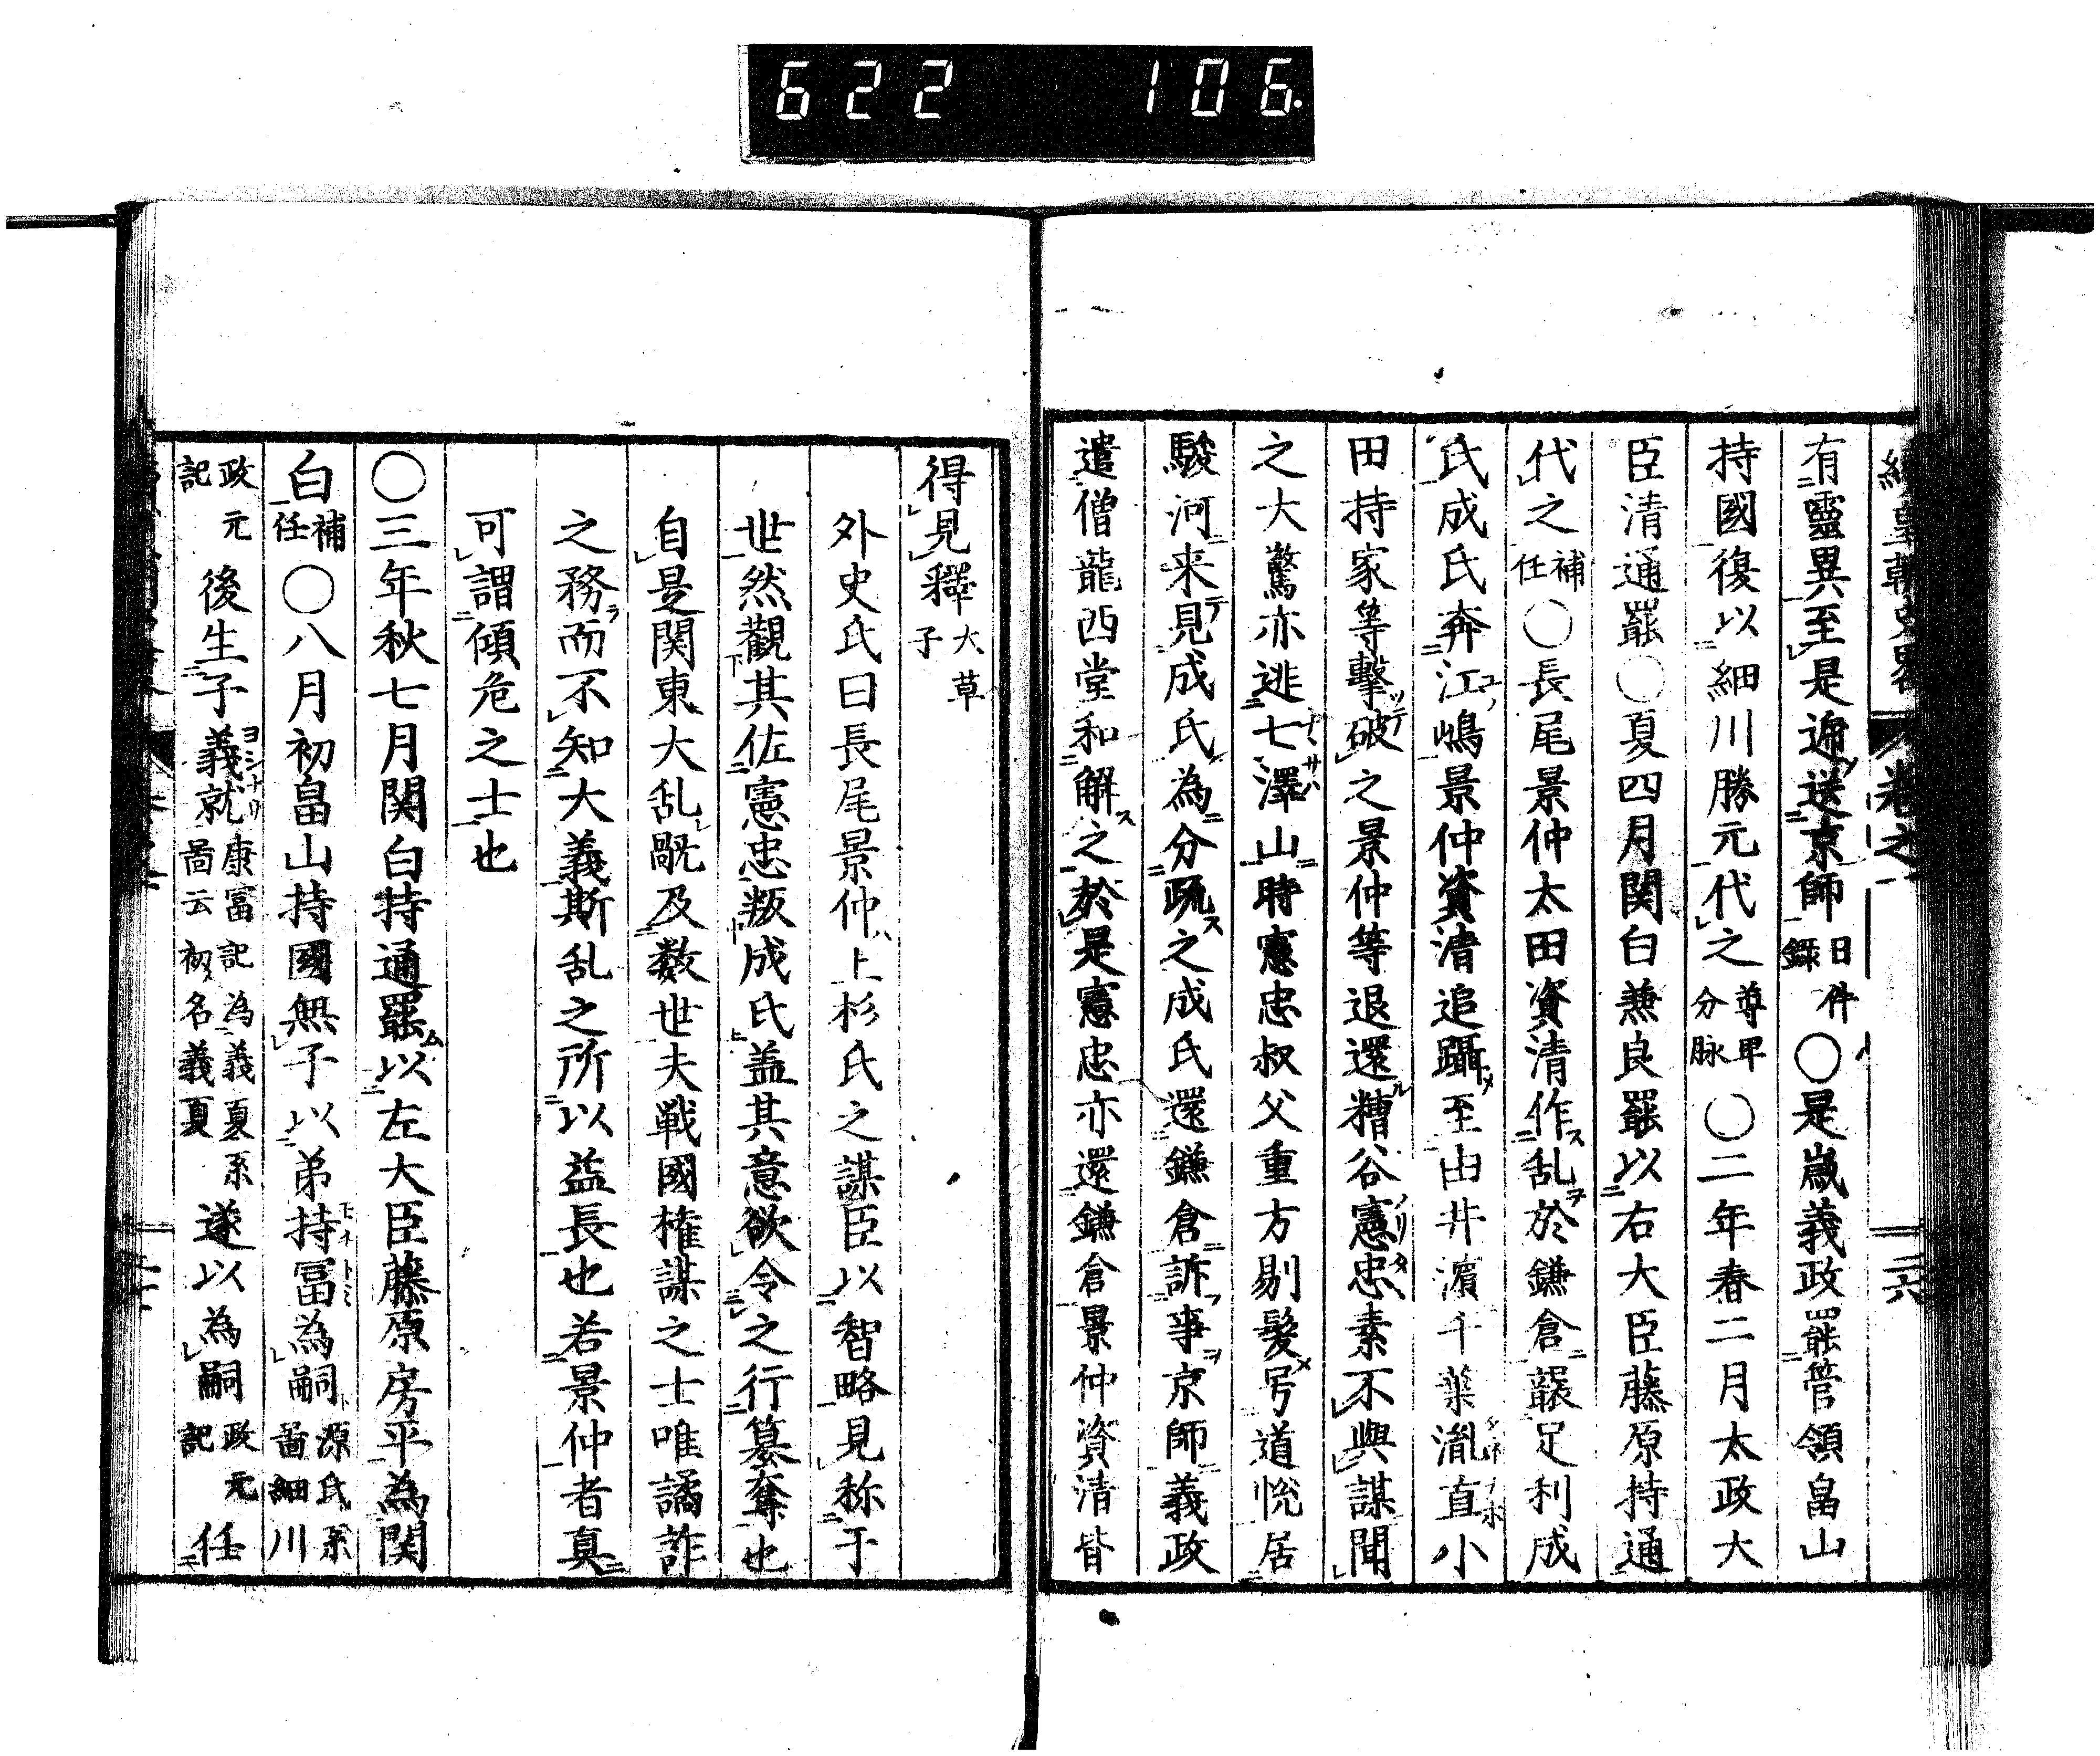 622 106.
有靈異至是遞送京師日件錄〇是歳義政罷管領畠山
持國復以細川勝元代之尊卑分脉〇二年春二月太政大
臣清通罷〇夏四月関白兼良罷以右大臣藤原持通
代之補任〇長尾景仲太田資清作乱於鎌倉襲足利成
氏成氏奔江嶋景仲資清追躡至由井濵千葉胤直小
田持家等擊破之景仲等退還糟谷憲忠素不與謀聞
之大驚亦逃七澤山時憲忠叔父重方剔髮号道恱居
駿河来見成氏為分疏之成氏還鎌倉訴事京師義政
遣僧龍西堂和解之於是憲忠亦還鎌倉景仲資清皆
得見釋大草子
外史氏曰長尾景仲上杉氏之謀臣以智略見称于
世然觀其佐憲忠叛成氏盖其意欲令之行簒奪也
自是関東大乱覷及数世夫戦國権謀之士唯譎詐
之務而不知大義斯乱之所以益長也若景仲者真
可謂傾危之士也
〇三年秋七月関白持通罷以左大臣藤原房平為関
白補任〇八月初畠山持國無子以弟持冨為嗣源氏系啚細川
政元記後生子義就康富記為義夏系啚云初名義夏遂以為嗣政元記任